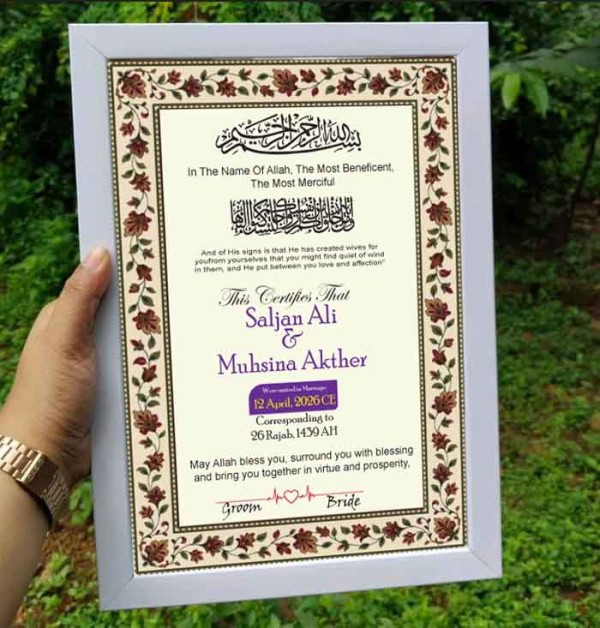 بسم الله الرحمن الرحيم
In The Name Of Allah, The Most Beneficent,
The Most Merciful
And of His signs is that He has created wives for
youfrom yourselves that you might find quiet of wind
in them, and He put between you love and affection"
This Certifies That
Saljan Ali
&
Muhsina Akther
Were united in Marriage
12 April, 2026 CE
Corresponding to
26 Rajab, 1439 AH
May Allah bless you, surround you with blessing
and bring you together in virtue and prosperity,
Groom Bride